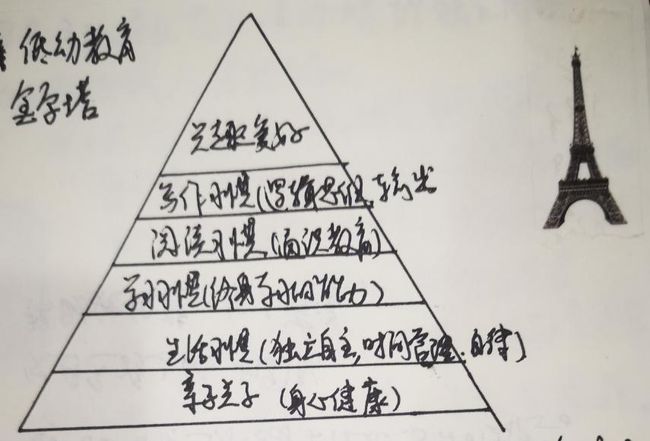 低幼教育
金字塔
兴趣爱好
写作习惯(逻辑思维,输出
阅读习惯(通识教育)
学习习惯(终身学习的能力)
生活习惯(独立自主,时间管理.自律)
亲子关子(身心健康)